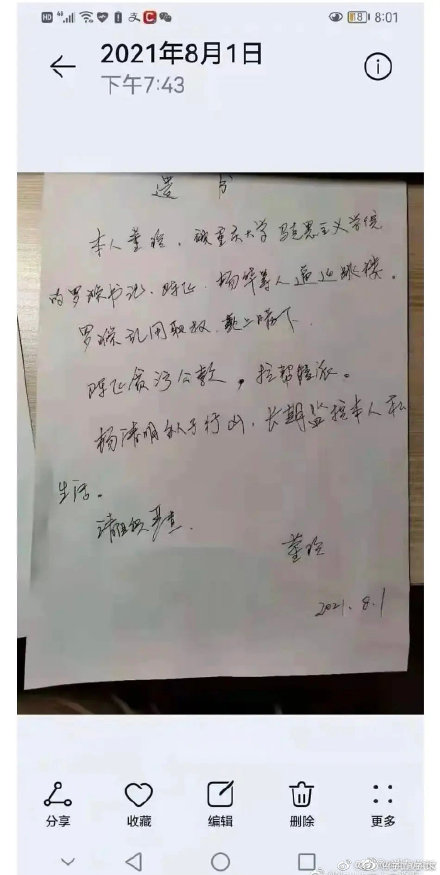 HD 8 8:01
2021年8月1日
下午7:43
遗书
本人董,被重庆大学马克思主义学院
的罗书记、陈飞、杨等人逼迫跳楼。
罗乱用职权,欺上瞒下
陈飞贪污公款,拉帮结派。
杨清明纵子行凶,长期监控本人私
生活。
请组织严查.
董
2021.8.1
分享 收藏 编辑 删除 更多